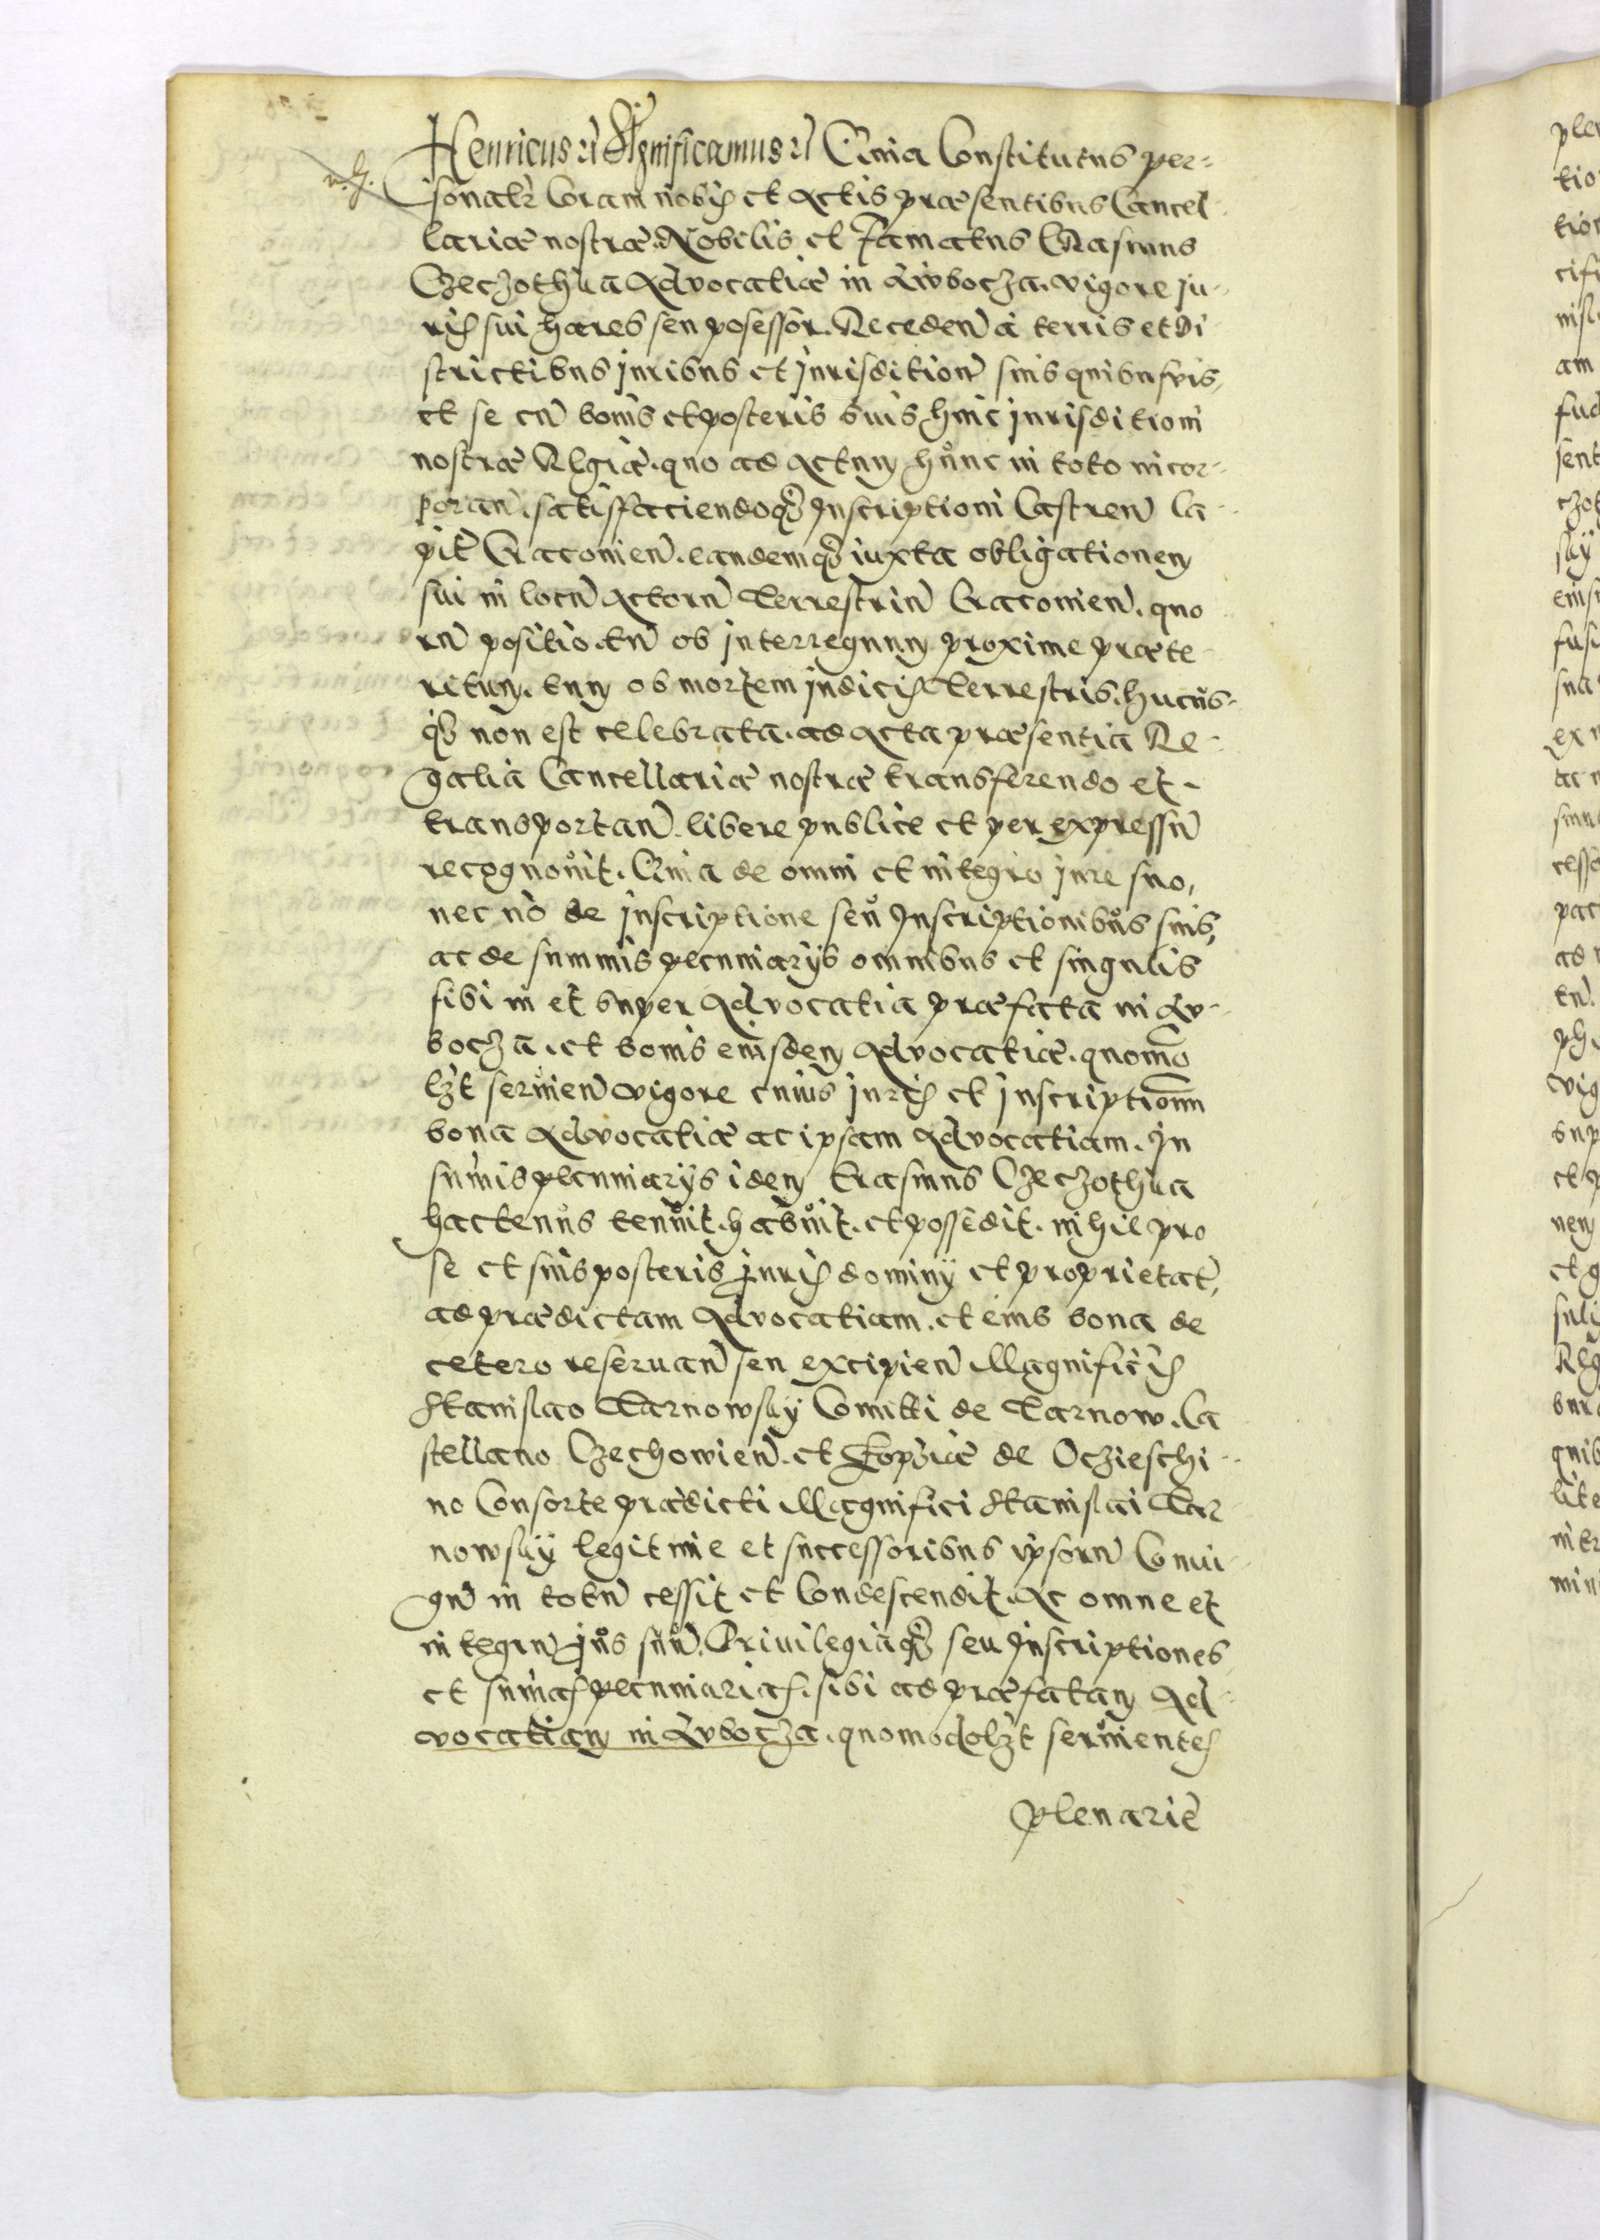 Henricus etc Significamus etc Quia Constitutus per-
sonalr Coram nobis et Actis præsentibus Cancel-
lariæ nostræ. Nobilis et Famatus Erasmus
Czeczothka Advocatiæ in Gwbocza. vigore ju-
ris sui hæres seu posessor. Receden a terris et Di-
strictibus juribus et jurisdition suis quibusvis,
et se cu bonis et posteris suis huic jurisditioni
nostræ Regiæ. quo ad Actum hunc in toto incor-
poran. satisfaciendoq Inscriptioni Castren Ca-
pit Cracouien. eandemq iuxta obligationem
sui in locu Actoru Terrestriu Cracouien. quo
ru positio. tu ob interregnum proxime præte-
ritum. tum ob mortem judicis Terrestris. hucus-
q non est celebrata. ad Acta præsentia Re-
galia Cancellariæ nostræ transferendo et-
transportan. libere publice et per expressu
recognouit. Quia de omni et integro jure suo,
nec no de inscriptione seu Inscriptionibus suis,
ac de summis pecuniarijs omnibus et singulis
sibi in et super Advocatia præfata in Gv-
bocza. et bonis eiusdem Advocatiæ. quomo
lzt seruien vigore cuius juris et inscriptionu
bona Advocatiæ ac ipsam Advocatiam. In
sumis pecuniarijs idem Erasmus Czeczothka
hactenus tenuit. habuit. et possedit. nihil pro
se et suis posteris juris dominij et proprietat,
ad prædictam Advocatiam. et eius bona de
cetero reseruan seu excipien Magnificis
Stanislao Tarnowsky Comitti de Tarnow. Ca
stellano Czechowien. et Sophiæ de Oczieschi-
no Consorte prædicti Magnifici Stanislai Tar
nowsky legitime et successoribus ipsoru Conui-
gu in totu cessit et Condescendit. Ac omne et
integru jus suu. Privilegiaq seu Inscriptiones
et sumas pecuniarias. sibi ad præfatam Ad-
vocatiam in Gvbocza. quomodolzt seruientes
plenarie